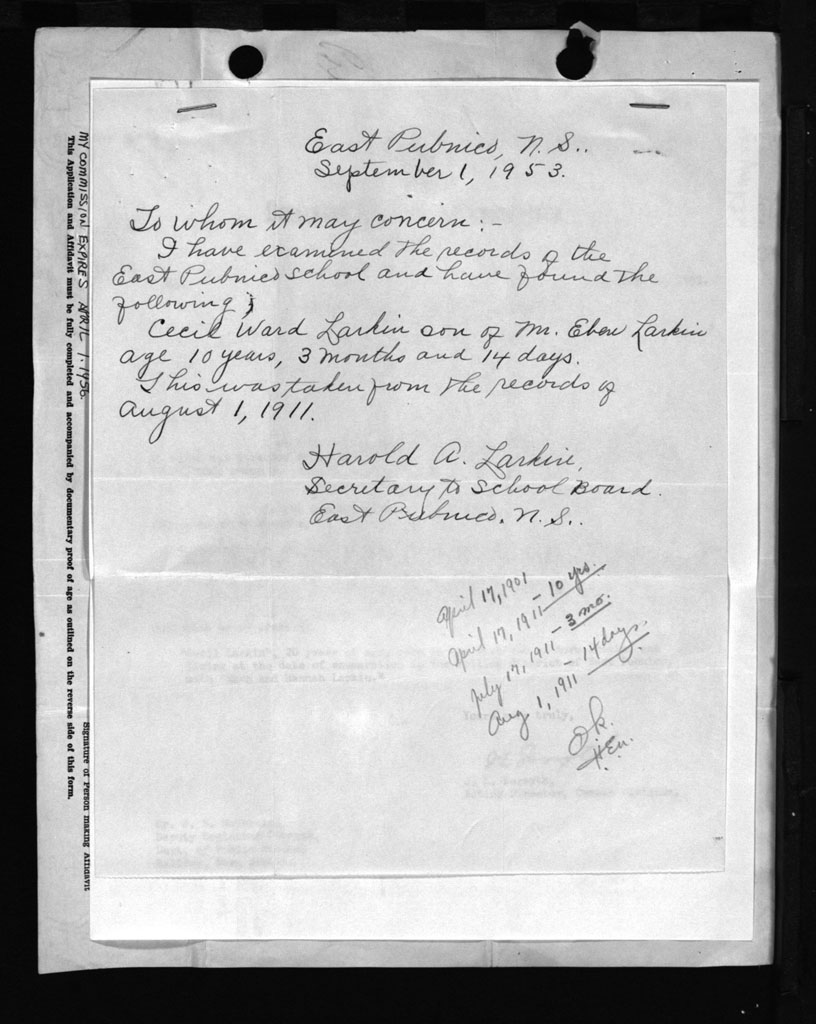 East Pubnico, N.S..
September 1, 1953.
To whom it may concern:-
I have examined the records of the
East Pubnico school and have found the
following;
Cecil Ward Larkin son of Mr. Eben Larkin
age 10 years, 3 months and 14 days.
This was taken from the records of
August 1, 1911.
Harold A. Larkin,
Secretary to School Board.
East Pubnico. N.S..
April 17, 1901
April 17, 1911 - 10 yrs.
July 17, 1911 - 3 mo.
Aug 1, 1911 - 14 days.
Ok.
MY COMMISSION EXPIRES APRIL 1. 1956.
Signature of Person making Affidavit
This Application and Affidavit must be fully completed and accompanied by documentary proof of age as outlined on the reverse side of this form.